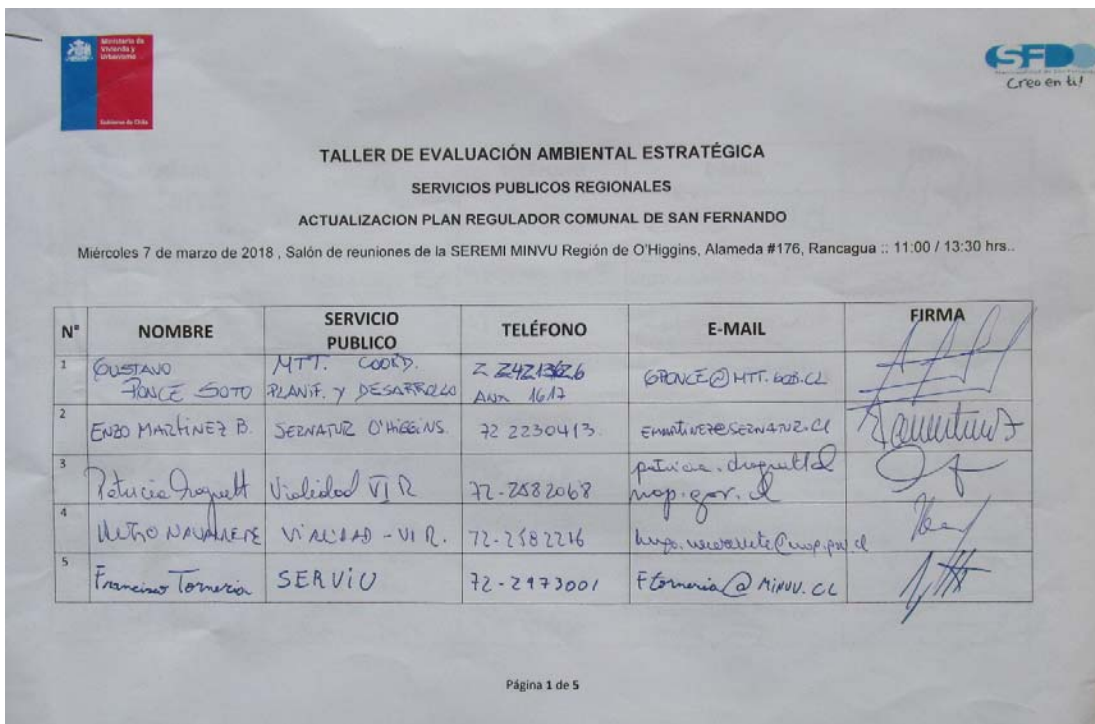 Ministerio de
Vivienda y
Urbanismo
Gobierno de Chile
SFDO
Creo en ti!
TALLER DE EVALUACIÓN AMBIENTAL ESTRATÉGICA
SERVICIOS PUBLICOS REGIONALES
ACTUALIZACION PLAN REGULADOR COMUNAL DE SAN FERNANDO
Miércoles 7 de marzo de 2018 , Salón de reuniones de la SEREMI MINVU Región de O'Higgins, Alameda #176, Rancagua :: 11:00 / 13:30 hrs..
N° NOMBRE SERVICIO PUBLICO TELÉFONO E-MAIL FIRMA
1 GUSTAVO PONCE SOTO MTT. COORD. PLANIF. Y DESARROLLO 1617 GPONCE@MTT.GOB.CL
2 ENZO MARTÍNEZ B. SERNATUR O'HIGGINS. 72 2230413. EMARTINEZ@SERNATUR.CL
3 Patricia Droguett Vialidad VI R 72-2582068 mop.gov.cl
4 HUGO NAVARRETE VIALIDAD - VI R. 72-2582216 hugo.navarrete@mop.gov.cl
5 Francisco Torneria SERVIU 72-2973001 Ftorneria@MINVU.CL
Página 1 de 5